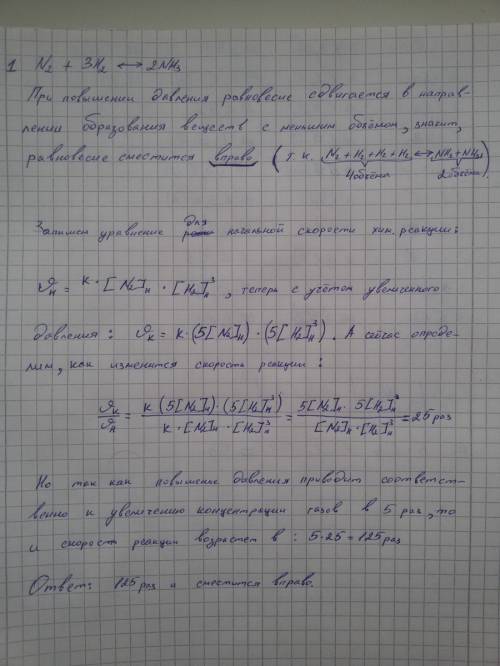 1 N₂ + 3H₂ ⟷ 2NH₃
При повышении давления равновесие сдвигается в направ-
лении образования веществ с меньшим объёмом, значит,
равновесие сместится вправо (т.к. N₂ + H₂ + H₂ + H₂ ⟷ NH₃ + NH₃)
4 объёма 2 объёма
Запишем уравнение для начальной скорости хим. реакции:
υн = k · [N₂]н · [H₂]н³, теперь с учётом увеличенного
давления: υк = k · (5[N₂]н) · (5[H₂]н³). А сейчас опреде-
лим, как изменится скорость реакции:
υк/υн = k (5[N₂]н) · (5[H₂]н³) / k · [N₂]н · [H₂]н³ = 5[N₂]н · 5[H₂]н³ / [N₂]н · [H₂]н³ = 25 раз
Но так как повышение давления приводит соответст-
венно к увеличению концентрации газов в 5 раз, то
и скорость реакции возрастет в: 5·25 = 125 раз
Ответ: 125 раз и сместится вправо.